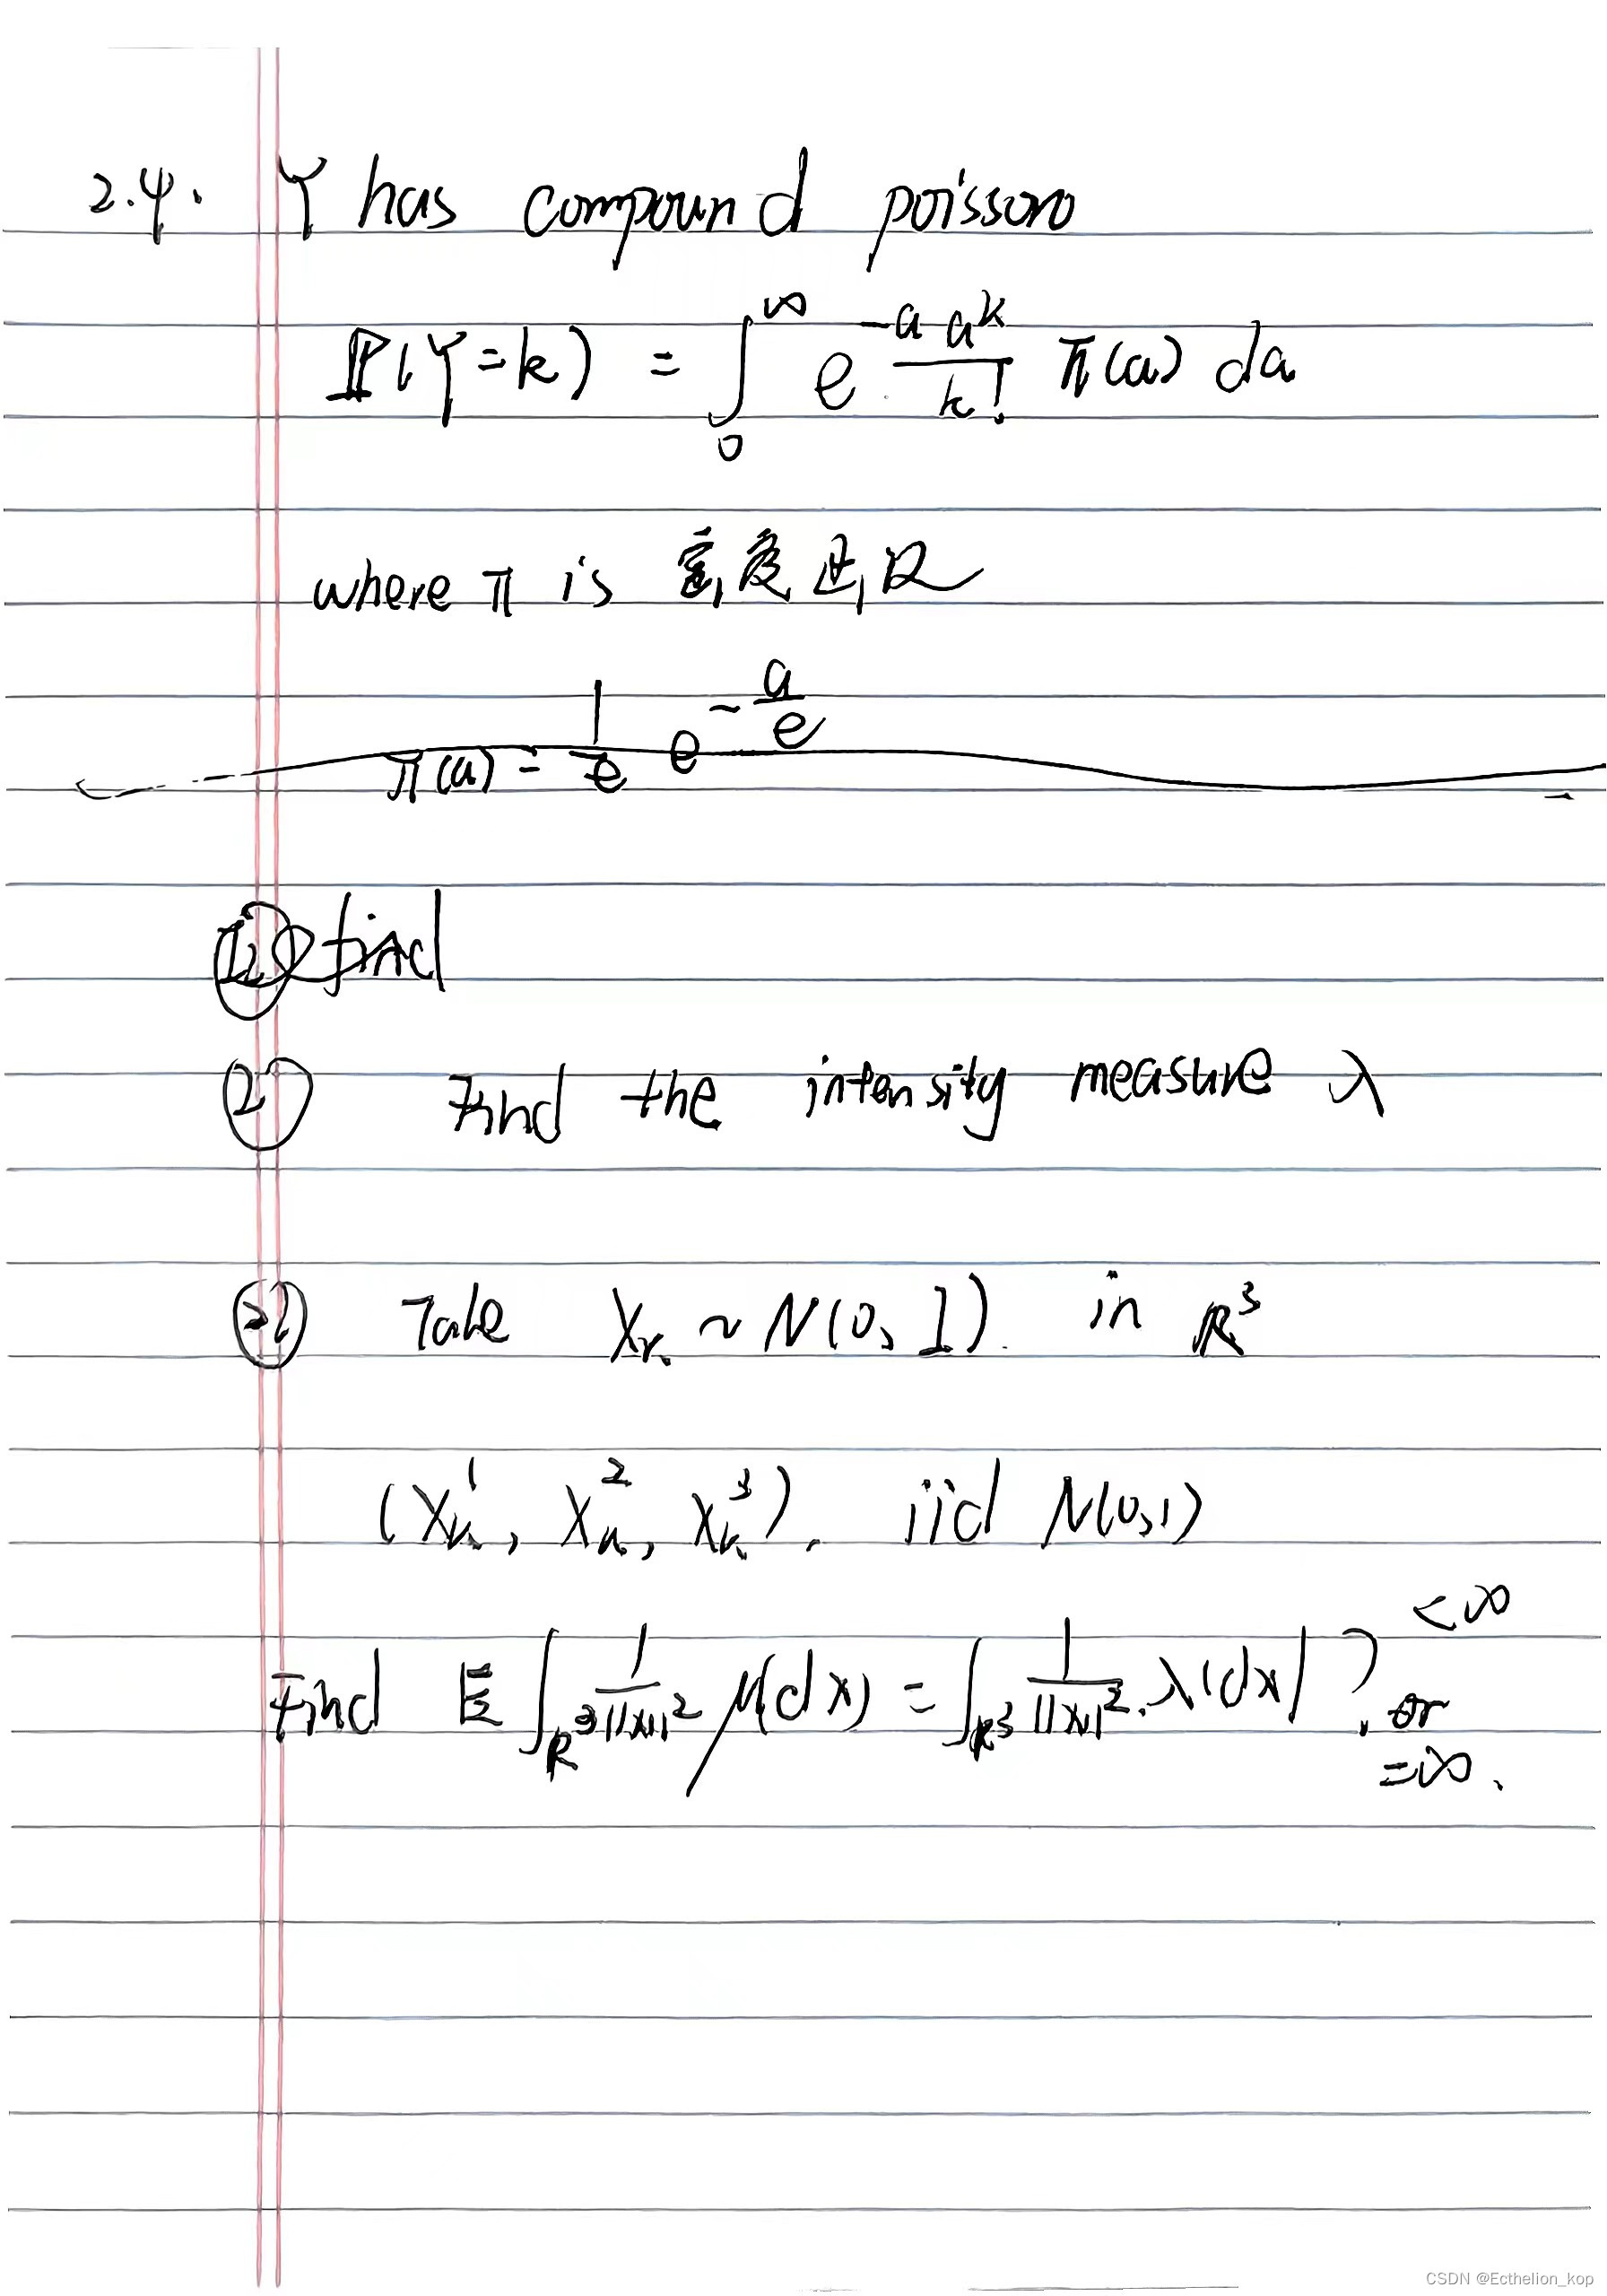 2.4. Y has compound poisson
P(Y=k) = ∫₀^∞ e^{-a} a^k/k! π(a) da
where π is 密度函数
π(a) = 1/e e^{-a/e}
find
2) Find the intensity measure λ
Take X_k ~ N(0, I). in R³
(X_k¹, X_k², X_k³). iid N(0,1)
Find E ∫_{R³} 1/||x||² μ(dx) = ∫_{R³} 1/||x||². λ(dx) ? <∞ or =∞.
CSDN @Ecthelion_kop